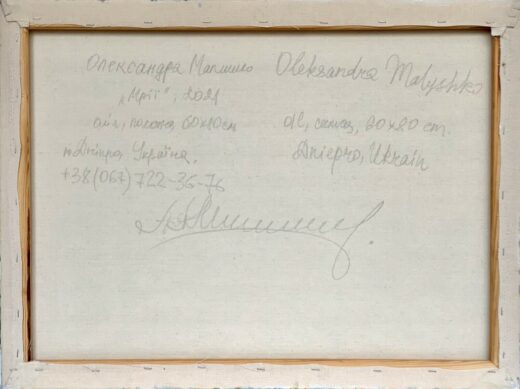 Олександра Малишко Oleksandra Malyshko
„Мрії", 2021
олія, полотно, 60х80см oil, canvas, 60x80 cm.
м.Дніпро, Україна. Dnipro, Ukrain
+38(067)722-36-76